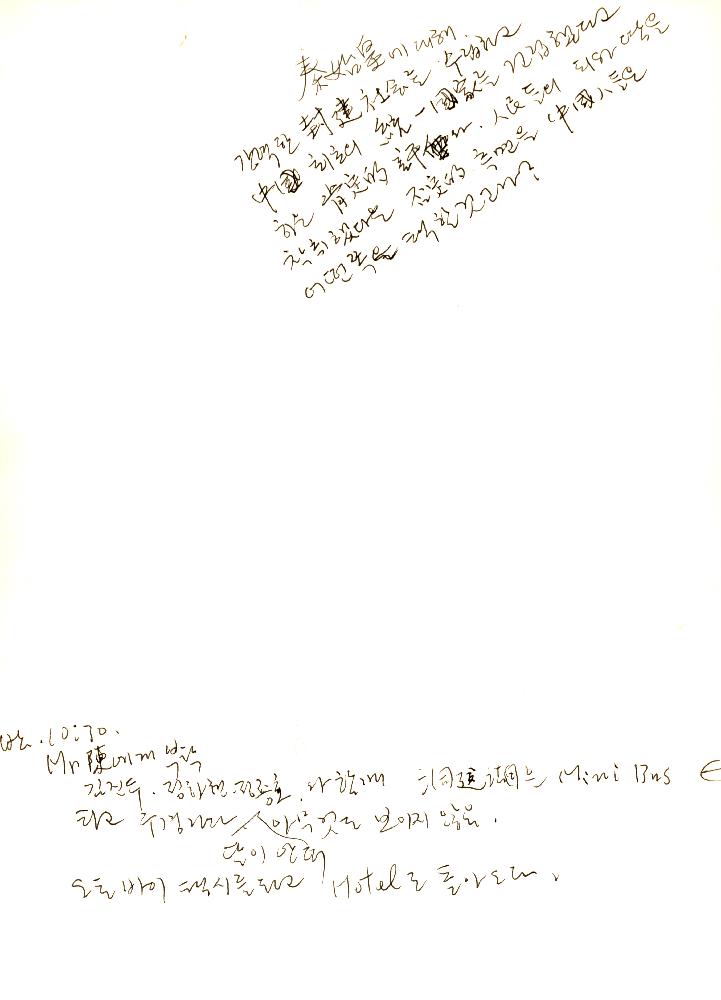 秦始皇에 대해.
강력한 封建社会를 수립하고
中國 최초의 統一國家를 건립했다고
하는 肯定的 評價와. 人民들의 피와 땀을
착취했다는 否定的 측면을 中國人들은
어떤 쪽을 택할 것인가?
10:30.
Mr 陳에게 부탁
나 함께 Mini Bus
타고 구경가다 아무것도 보이지 않음.
달이 없어
오토바이 택시를 타고 Hotel로 돌아오다.